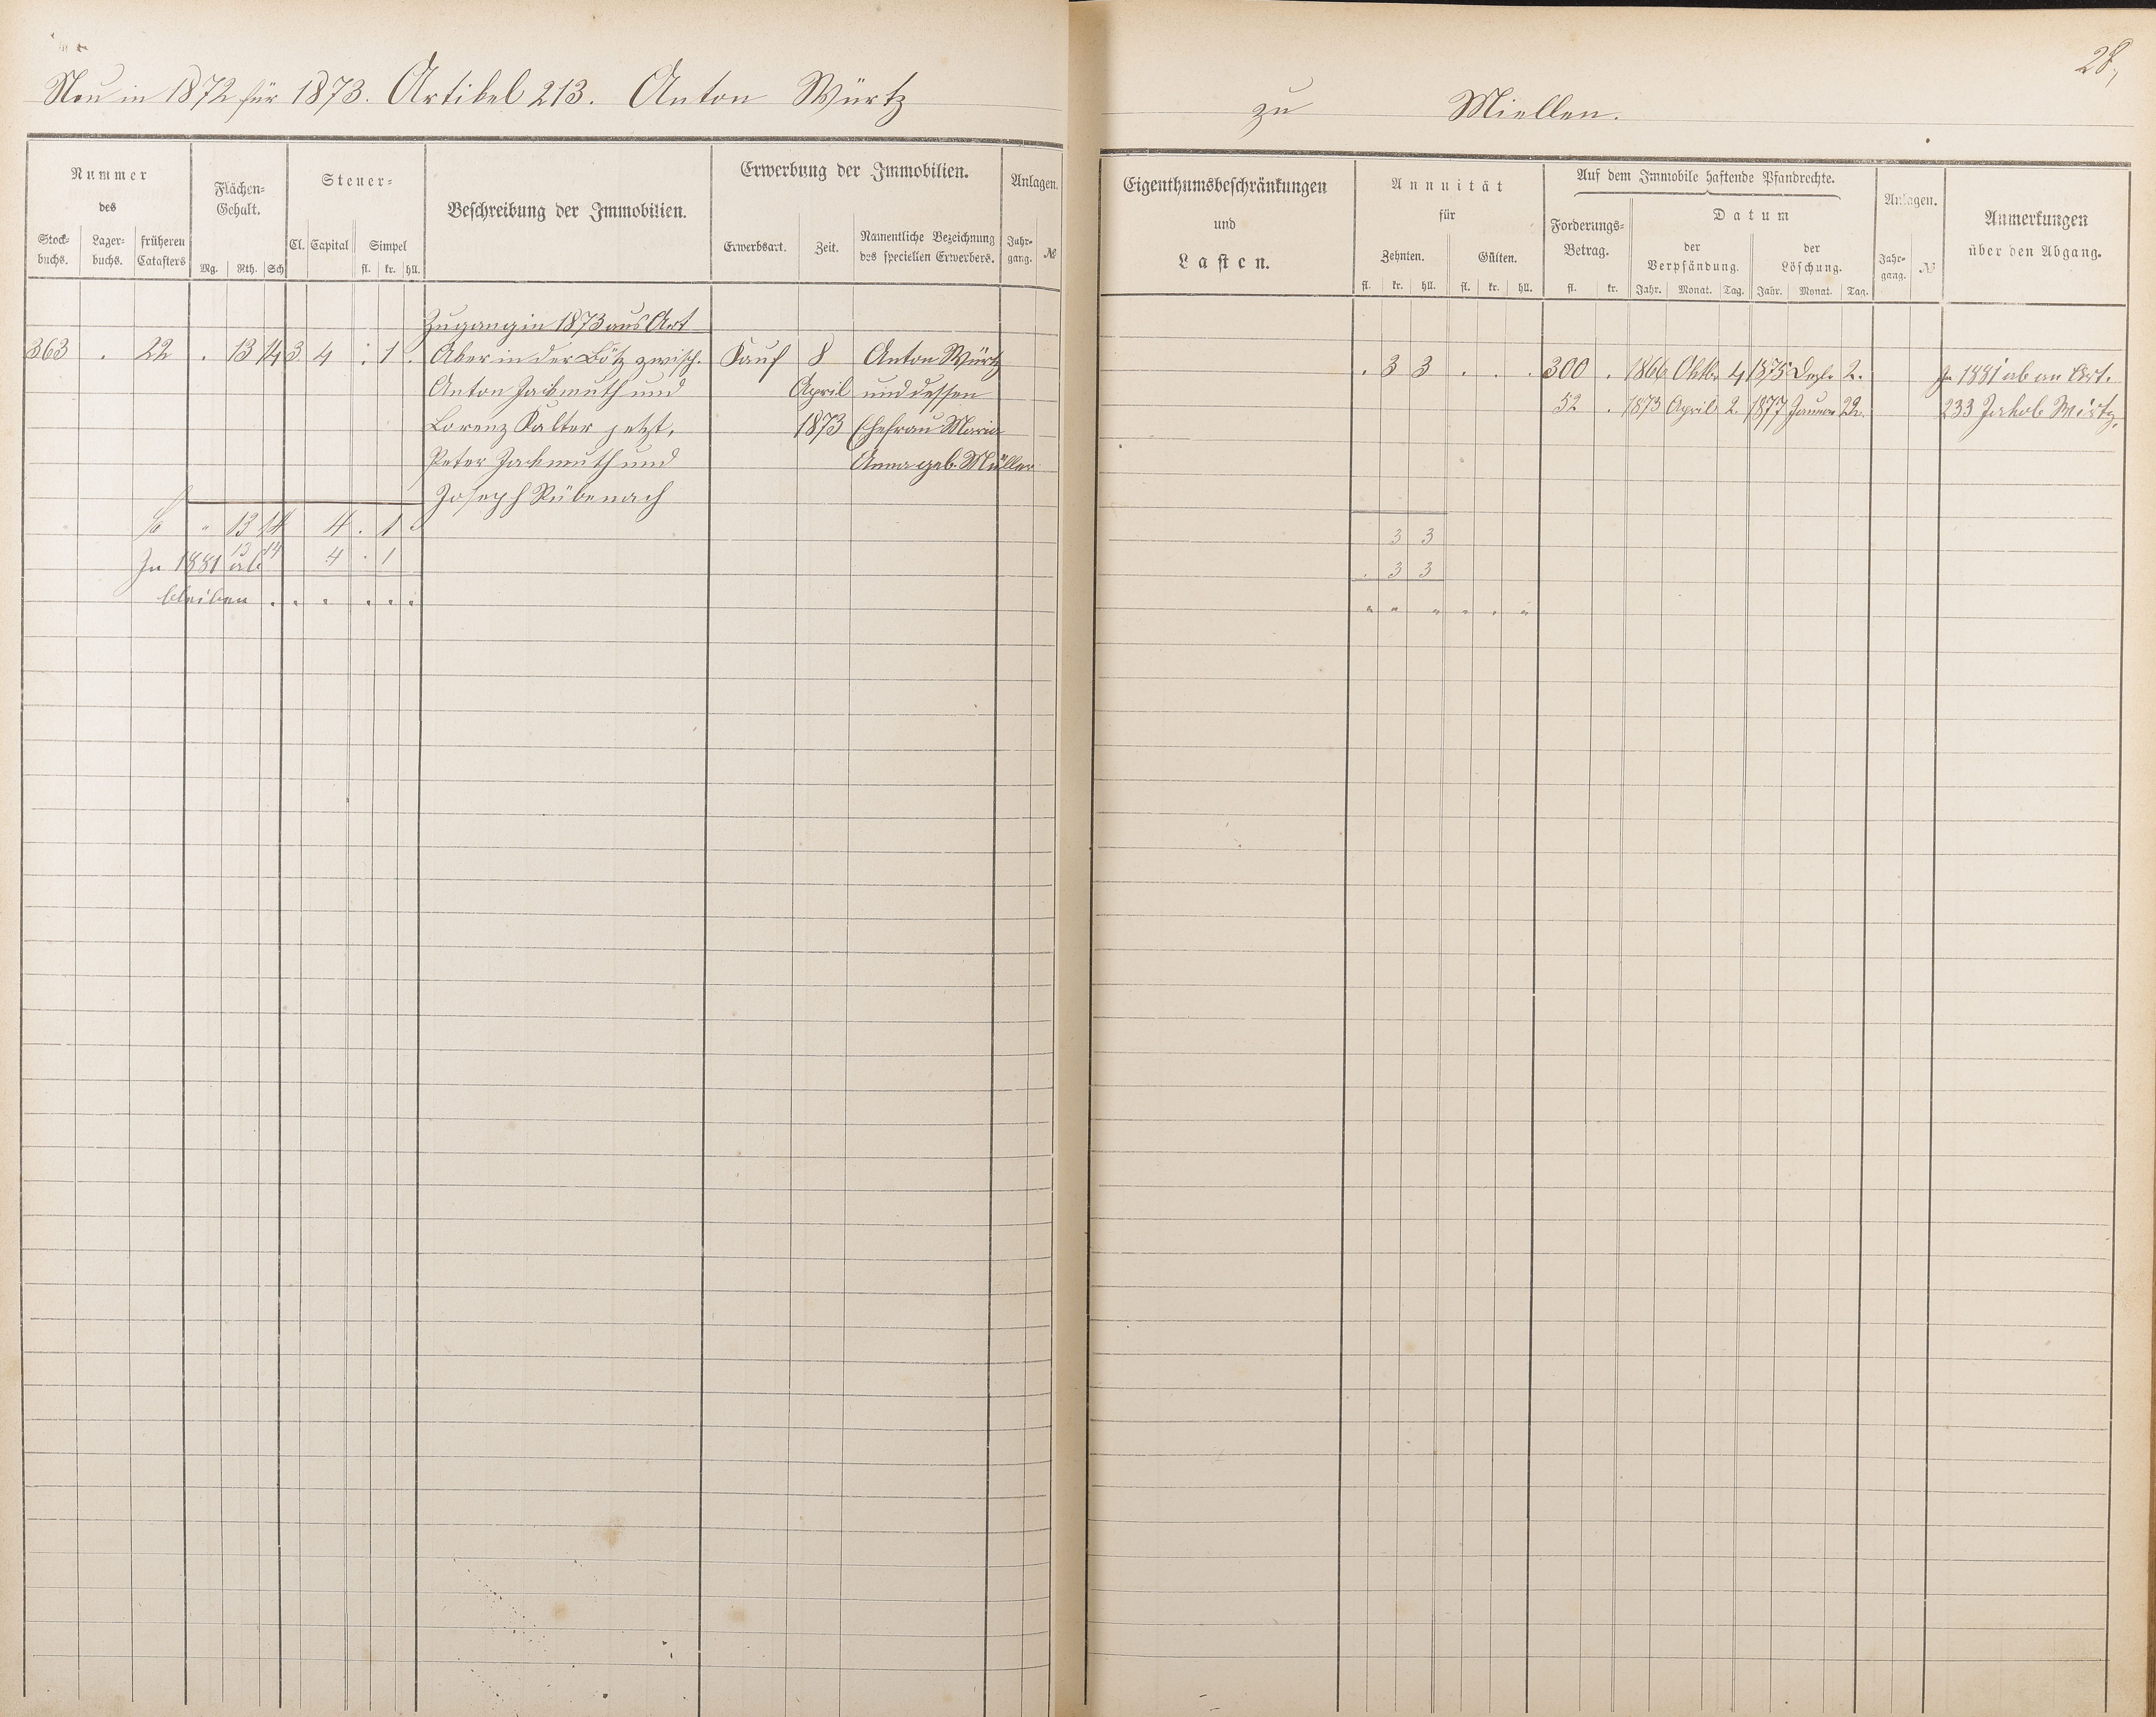 28,
Neu in 1872 für 1873. Artikel 213. Anton Würtz zu Miellen.
Nummer des
Stock-buchs. Lager-buchs. früheren Catasters
Flächen-Gehalt.
Mg. Rth. Sch
Steuer-
Cl. Capital Simpel
fl. kr. hll.
Beschreibung der Immobilien.
Erwerbung der Immobilien.
Erwerbsart. Zeit. Namentliche Bezeichnung des speciellen Erwerbers.
Anlagen.
Jahr-gang. №
Eigenthumsbeschränkungen und Lasten.
Annuität für
Zehnten. Gülten.
fl. kr. hll. fl. kr. hll.
Auf dem Immobile haftende Pfandrechte.
Forderungs-Betrag.
fl. kr.
Datum
der Verpfändung. der Löschung.
Jahr. Monat. Tag. Jahr. Monat. Tag.
Anlagen.
Jahr-gang. №
Anmerkungen über den Abgang.
Zugang in 1873 aus Art
363 . 22 . 13 14 3 4 . . 1 . Aker in der Bötz zwisch. Kauf 8 Anton Würtz . 3 3 . . . 300 . 1866 Oktb. 4 1875 Dezb. 2. In 1881 ab an Art.
Anton Jackmuth und April und dessen 52 . 1873 April 2. 1877 Januar 22. 233 Jakob Wirtz.
Lorenz Kalter jetzt, 1873 Ehefrau Maria
Peter Jackmuth und Anna geb. Müller
Joseph Rübenach
" 13 14 4 . 1 . 3 3
In 1881 ab 13 14 4 . 1 . 3 3
bleiben . . . . . . " " " " " "